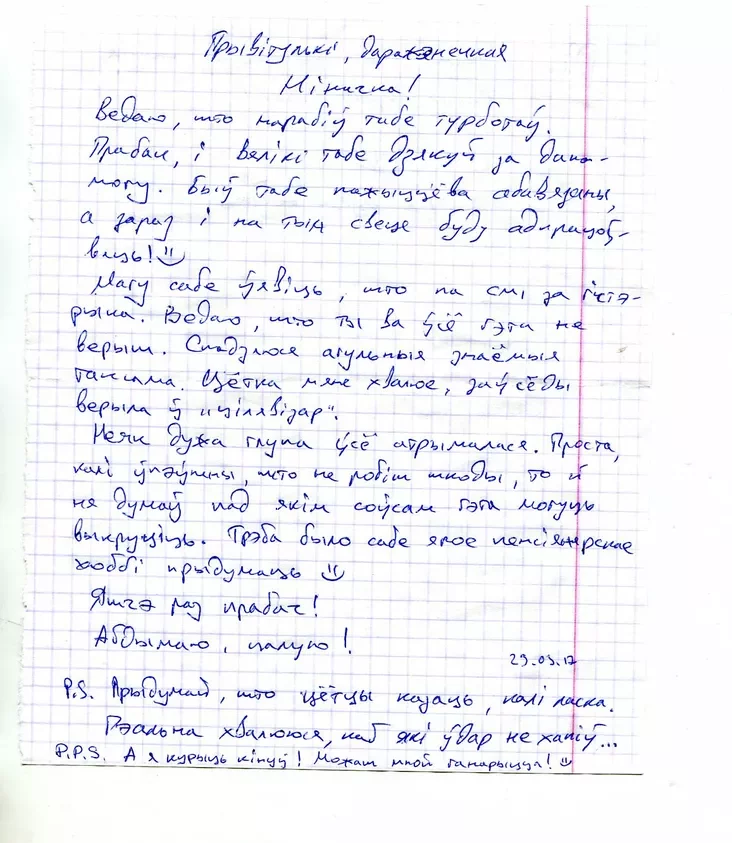 Прывітулькі, даражэнечкая
Нінычка!
Ведаю, што нарабіў табе турботаў.
Прабач, і вялікі табе дзякуй за дапа-
могу. Быў табе пажыццёва абавязаны,
а зараз і на тым свеце буду адпрацоў-
ваць! ☺
Магу сабе ўявіць, што па смі за гістэ-
рыка. Ведаю, што ты ва ўсё гэта не
верыш. Спадзяюся агульныя знаёмыя
таксама. Цётка мяне хвалюе, заўсёды
верыла ў "цілявізар".
Неяк дужа глупа ўсё атрымалася. Проста,
калі ўпэўнены, што не робіш шкоды, то й
ня думаў пад якім соўсам гэта могуць
выкруціць. Трэба было сабе якое пенсіянерскае
хоббі прыдумаць ☺
Яшчэ раз прабач!
Абдымаю, цалую!
29.03.17
P.S. Прыдумай, што цётцы казаць, калі ласка.
Рэальна хвалююся, каб які ўдар не хапіў...
P.P.S. А я курыць кінуў! Можаш мной ганарыцца! ☺